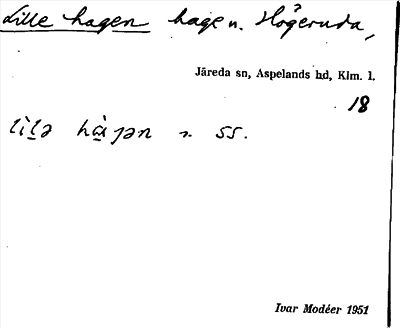 Lille hagen hage n. Högeruda,
Järeda sn, Aspelands hd, Klm. l.
18
lìlə hàgən n. ss.
Ivar Modéer 1951